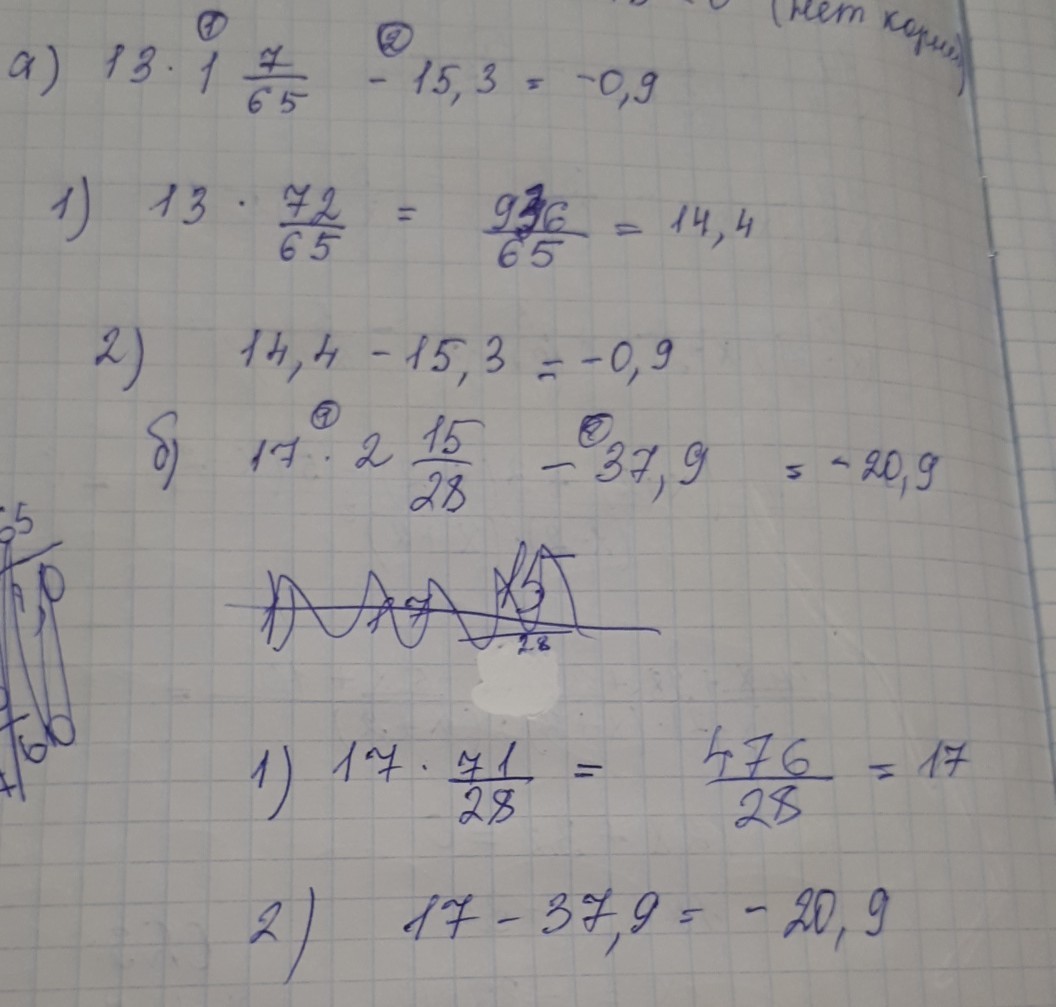 (нет корней)
а) 13 · 1 7/65 - 15,3 = -0,9
1) 13 · 72/65 = 936/65 = 14,4
2) 14,4 - 15,3 = -0,9
б) 17 · 2 15/28 - 37,9 = -20,9
1) 17 15/28
1) 17 · 71/28 = 476/28 = 17
2) 17 - 37,9 = -20,9